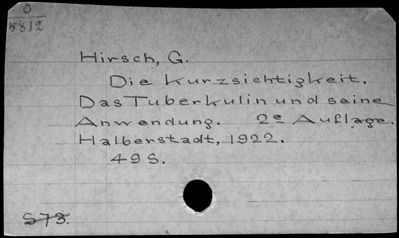 O
5812
Hirsch, G.
Die Kurzsichtigkeit.
Das Tuberkulin und seine
Anwendung. 2e Auflage.
Halberstadt, 1922.
49 S.
S73.